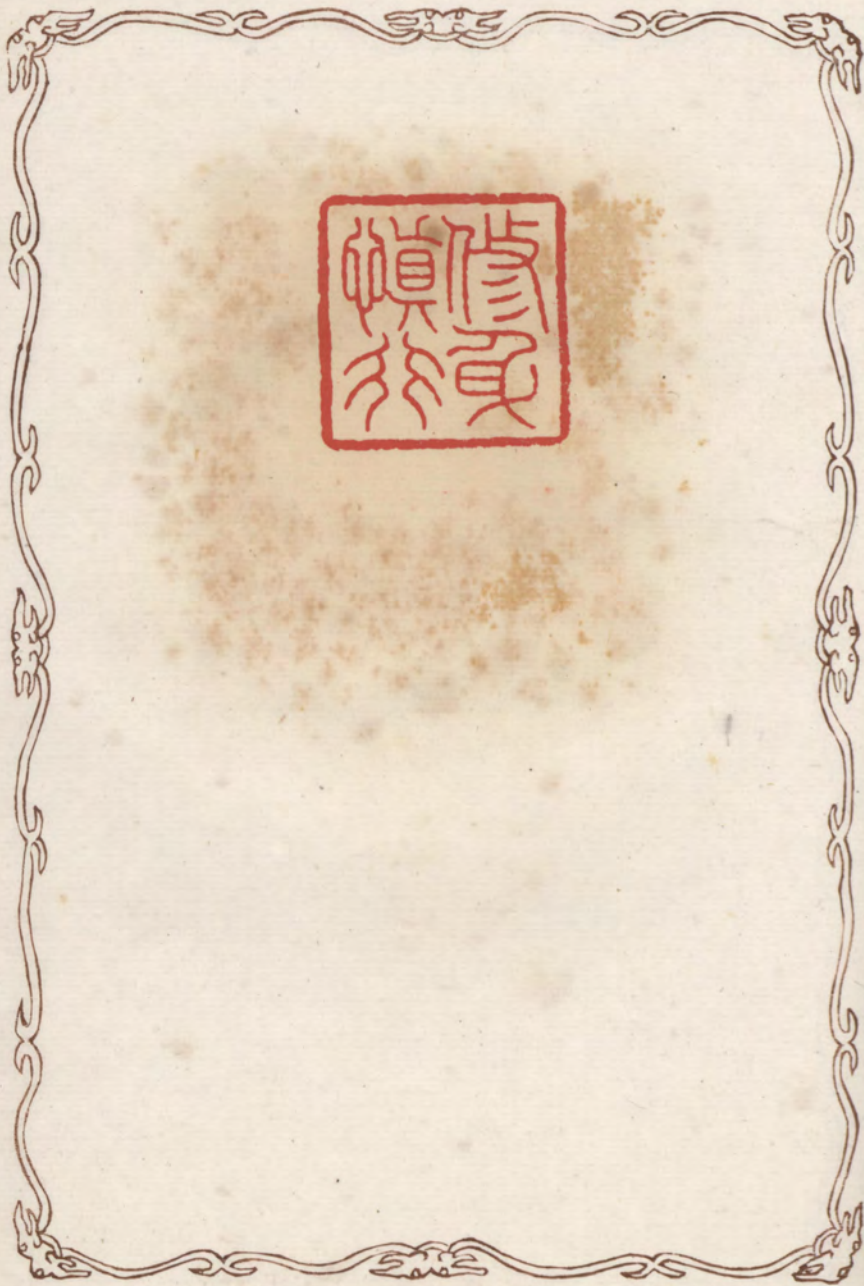 修身
慎行